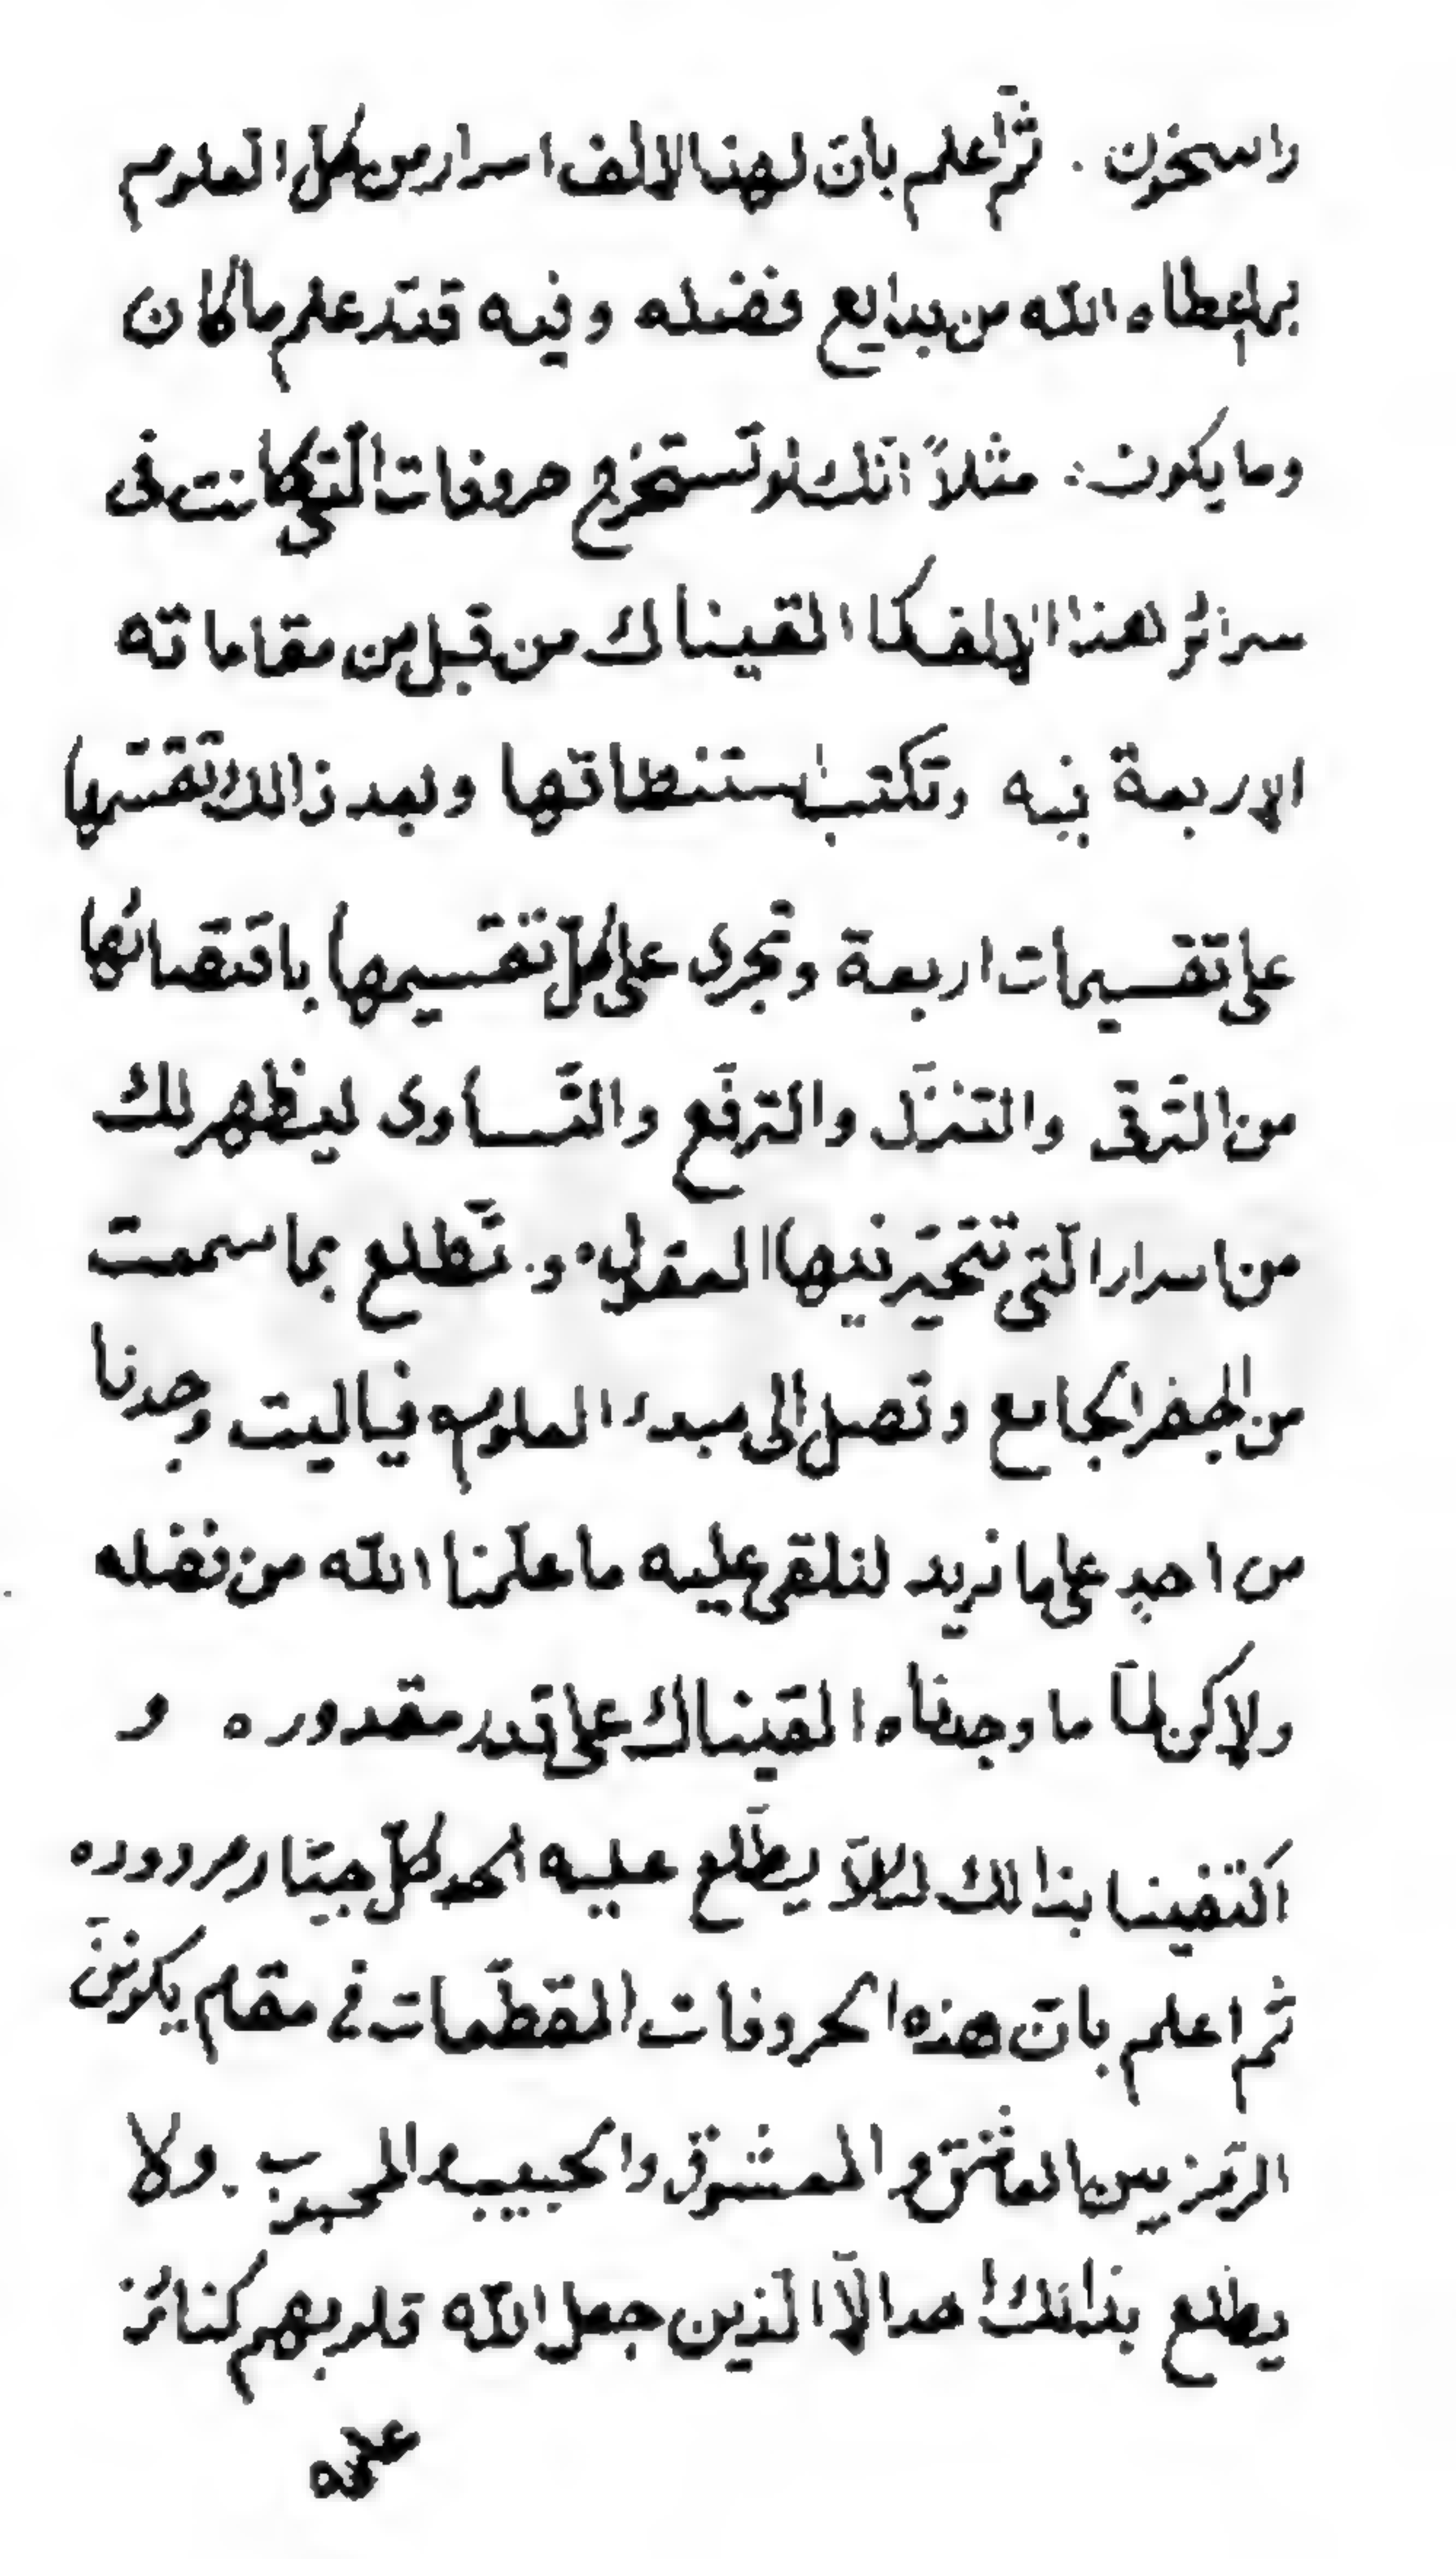 راسخون . ثمّ اعلم بانّ لهذا لالف اسرار من كلّ العلوم
بما اعطاه اللّه من بدايع فضله وفيه قدّر علم ما كان
وما يكون : مثلاً انّك لو تستخرج حروفات الّتى كانت فى
سرائر هذا الالف كما القيناك من قبل من مقاماته
الاربعة فيه وتكتب استنطاقها وبعد ذالك تقسّمها
على تقسيمات اربعة وتجرى على كلّ تقسيمها باقتضائها
من التّرقى والتنزّل والترفّع والتّساوى ليظهر لك
من اسرار الّتى تتحيّر فيها العقول و تطّلع بما سمعت
من الجفر الجامع وتصل الى مبدء العلوم فياليت وجدنا
من احدٍ على ما نريد لنلقى عليه ما علّمنا اللّه من فضله
ولاكن لمّا ما وجدناه القيناك على قدر مقدوره و
اكتفينا بذالك لئلّا يطّلع عليه احد كلّ جبّار مردوده
ثم اعلم بانّ هذه الحروفات المقطّعات فى مقام يكوننّ
الرّمز بين العاشق و المعشوق والحبيب والمحبوب . ولا
يطلع بذالك احد الّا الّذين جعل اللّه قلوبهم كنائز
علمه